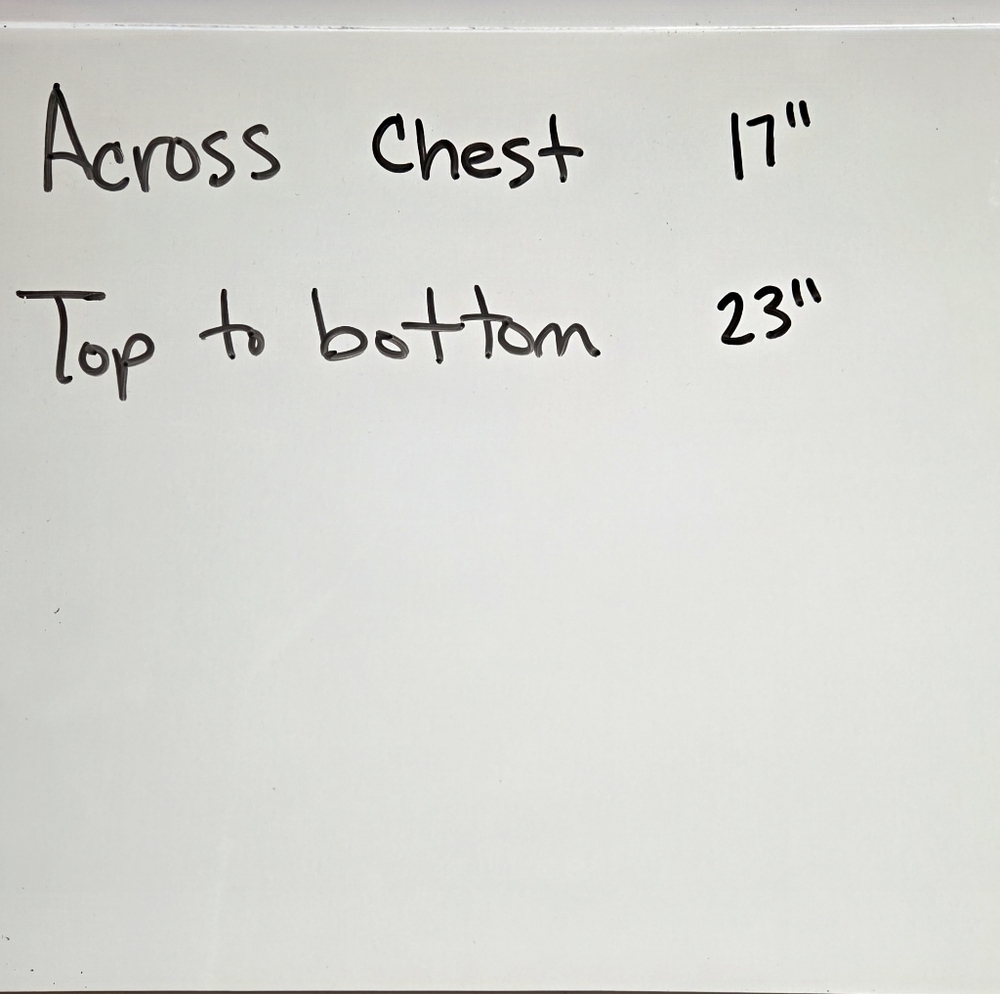 Across Chest 17"
Top to bottom 23"